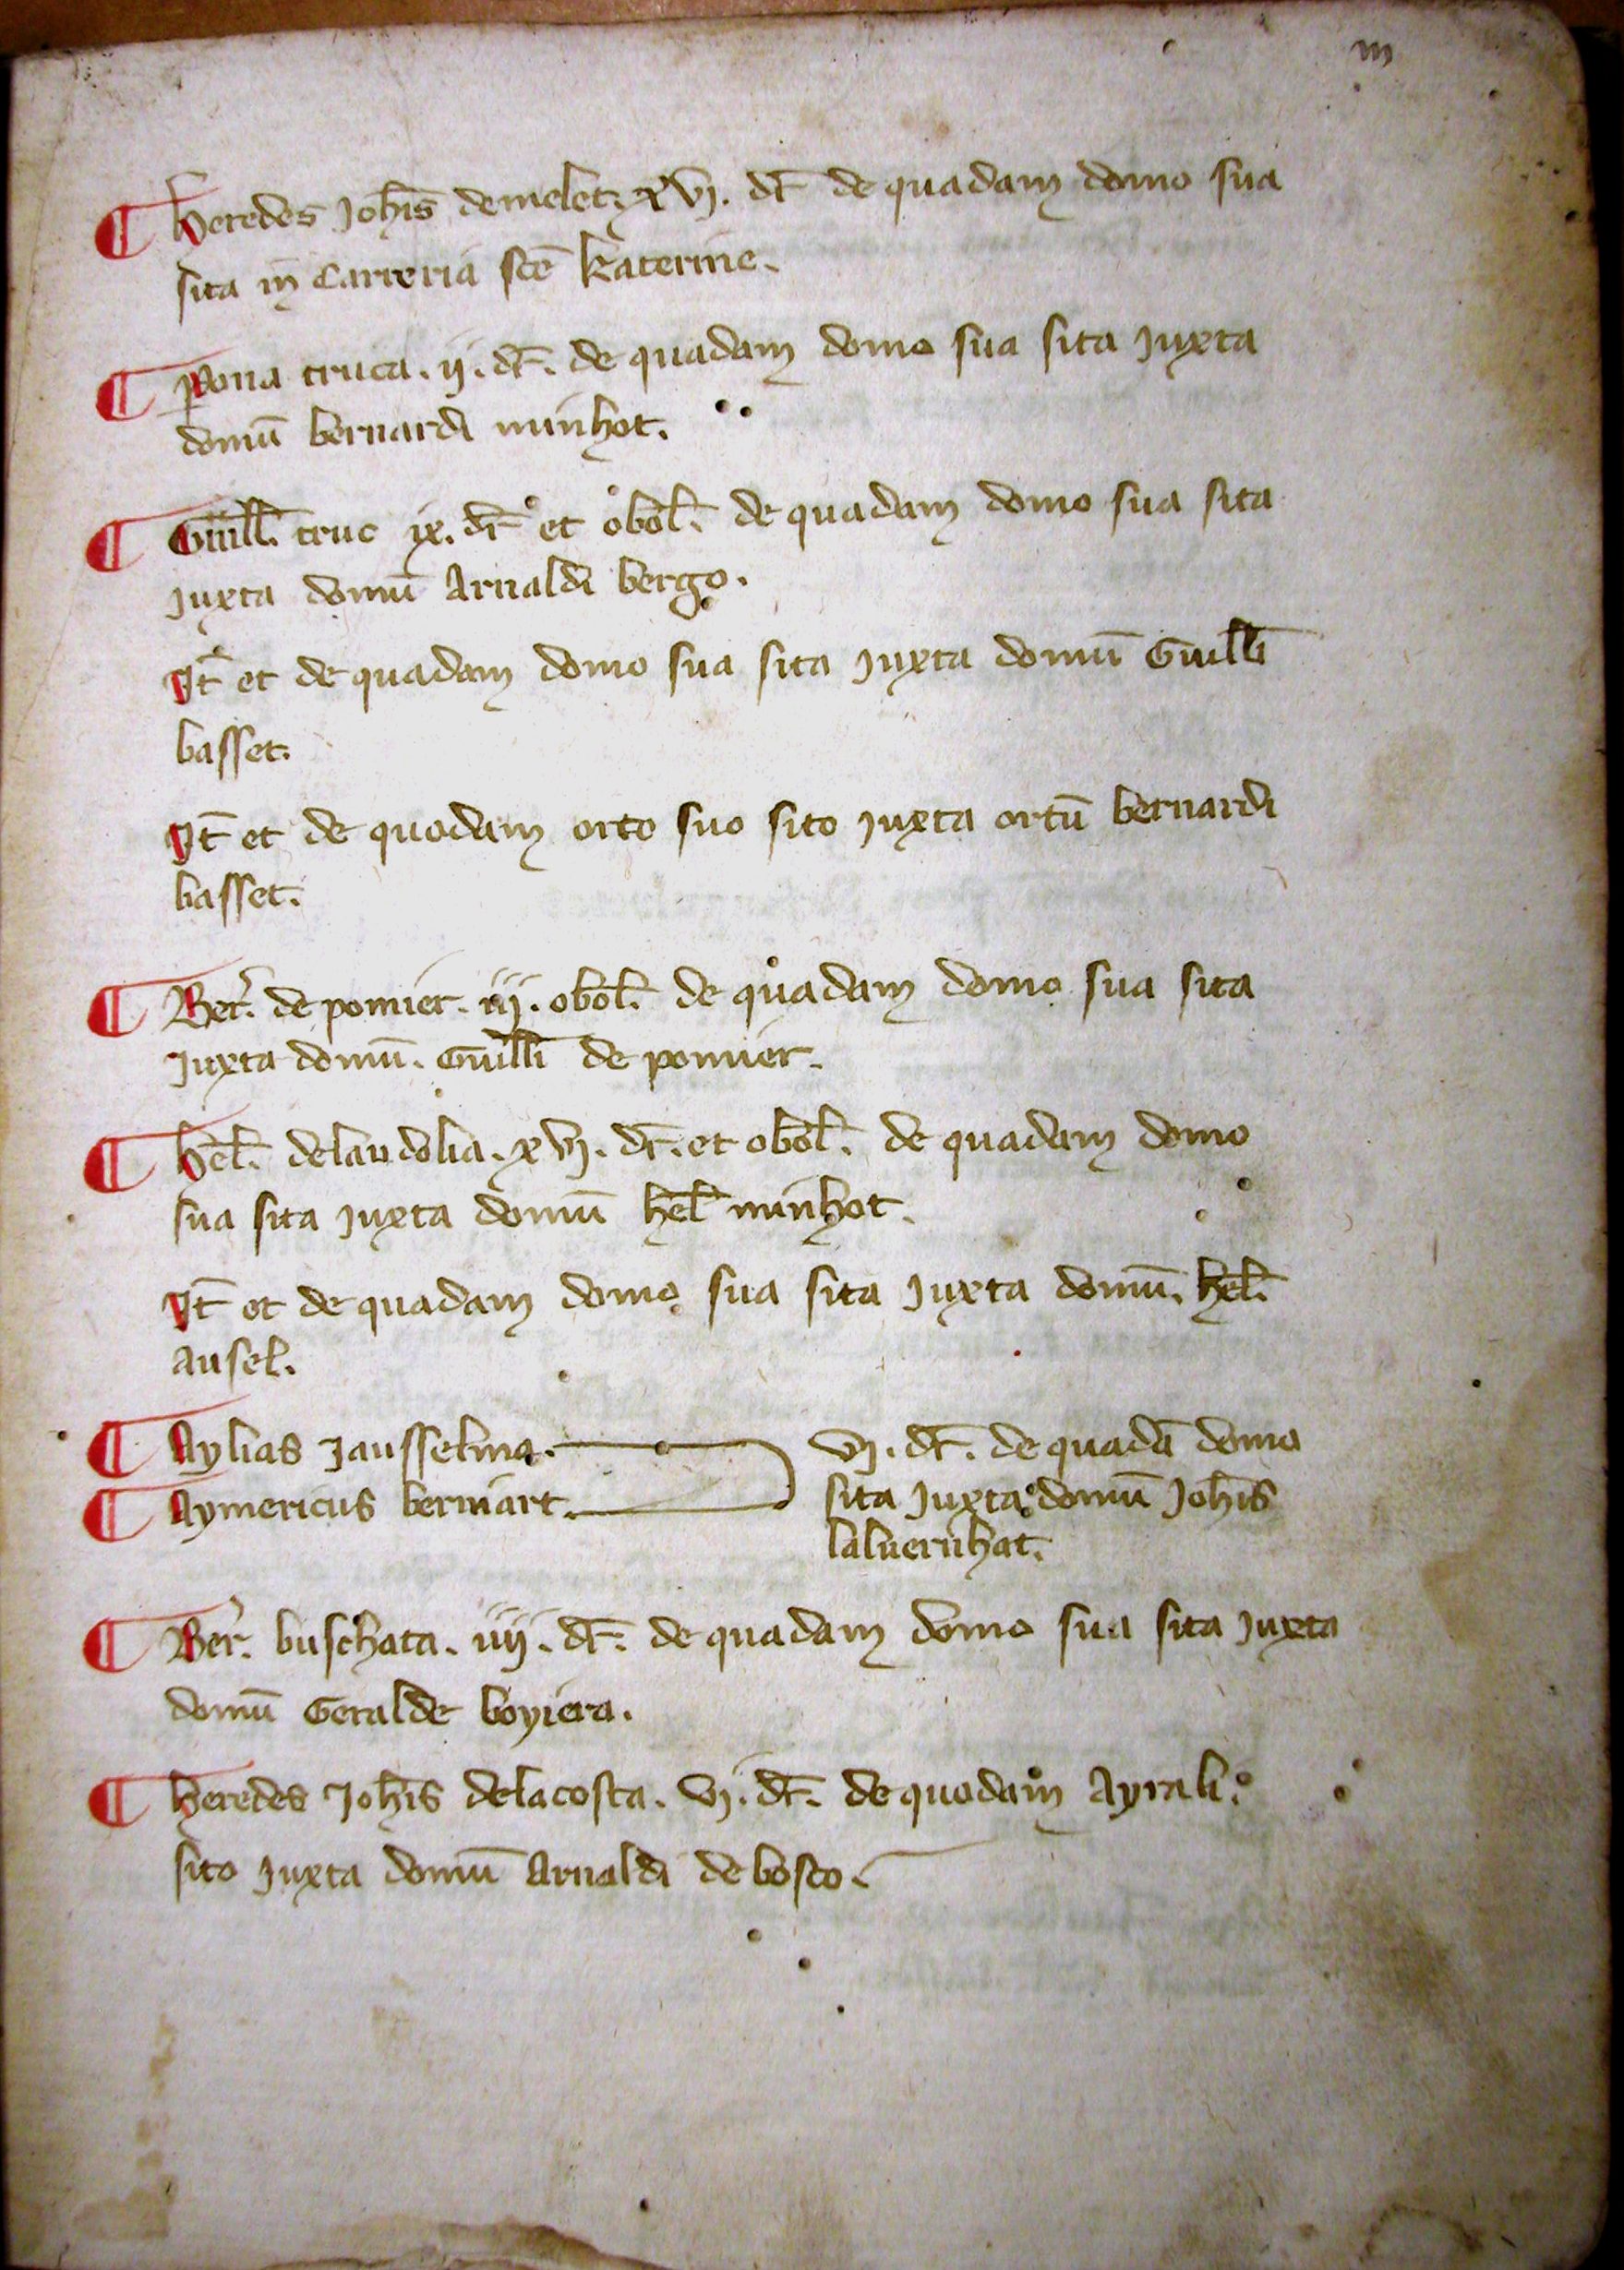 m
¶ heredes Joħis demelet. xvj. dr̄ de quadam domo sua
sita in Carreria sc̄e Katerine.
¶ pona truca. ij. dr̄. de quadam domo sua sita Juxta
domū bernardi minhot.
¶ Guill̄. truc ix. dr̄ et obol̄. de quadam domo sua sita
Juxta domū Arnaldi bergo.
It̄ et de quadam domo sua sita Juxta domū Guill̄i
basset.
It̄ et de quodam orto suo sito Juxta ortū bernardi
basset.
¶ Ber̄. de pomier. iij. obol̄. de quadam domo sua sita
Juxta domū. Guill̄i de pomier.
¶ hel̄. delandolia. xvj. dr̄. et obol̄. de quadam domo
sua sita Juxta domū hel̄ minhot.
It̄ et de quadam domo sua sita Juxta domū. hel̄.
ansel.
¶ Aylias Jausselma.
¶ Aymericus berniart.
vj. dr̄. de quadā domo
sita Juxta domū Joħis
laluernhat.
¶ Ber̄. buschata. iiij. dr̄. de quadam domo sua sita Juxta
domū Geralde boyiera.
¶ heredes Joħis delacosta. vj. dr̄. de quodam Ayrali.
sito Juxta domū Arnaldi de bosco.